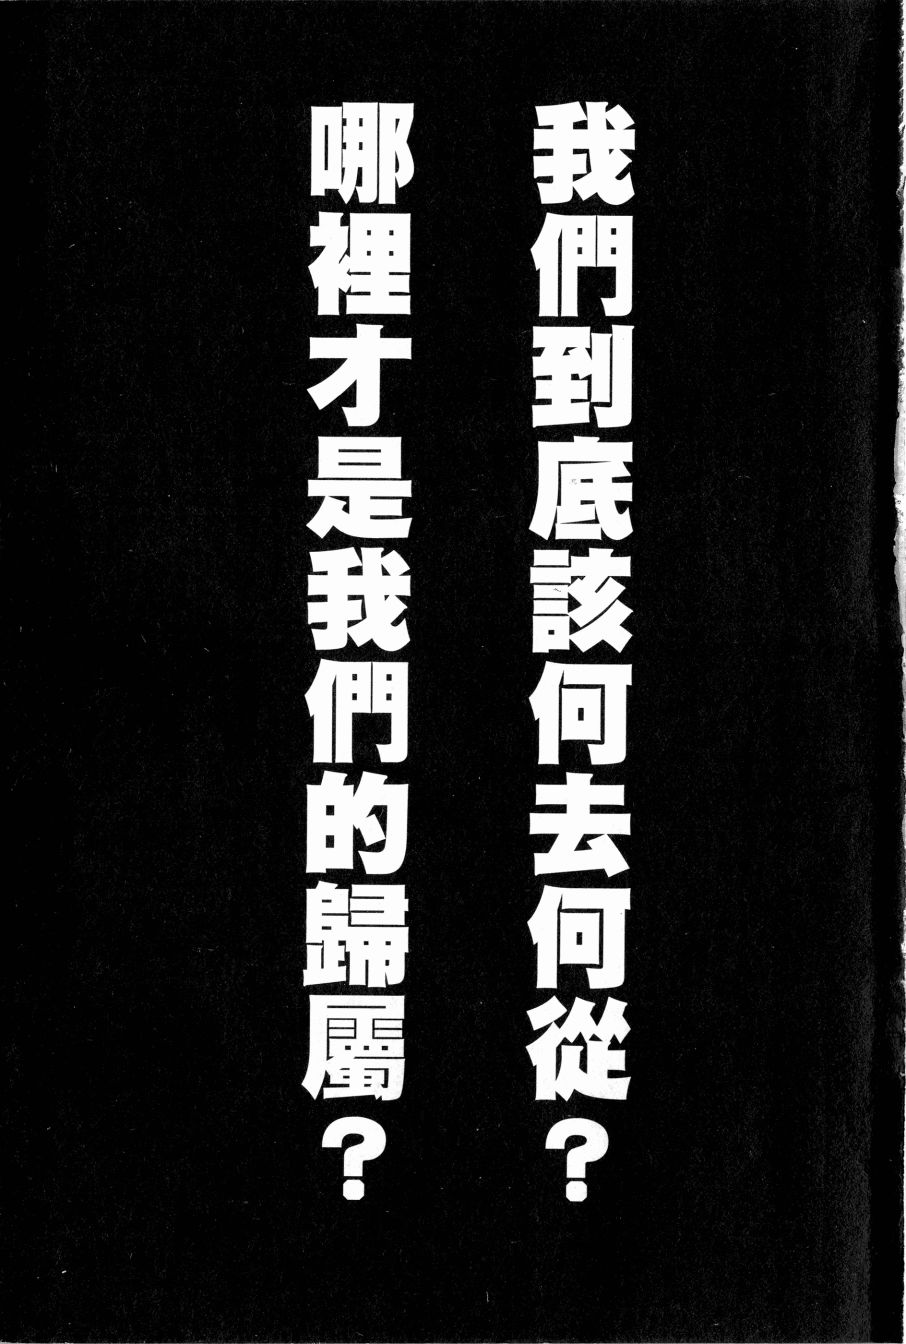 我們到底該何去何從？
哪裡才是我們的歸屬？